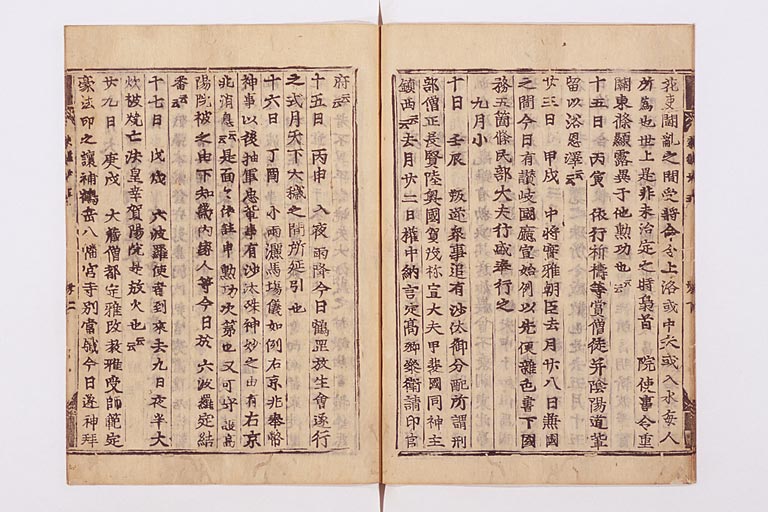 於東關亂之間受將命分上洛或中矢或入水每人
所爲也世上是非未治定之時梟首 院使事令重
關東條顯露異于他勲功也云云
十五日 丙寅 依行祈禱等賞僧徒幷陰陽道輩
留以浴恩澤云云
廿三日 甲戌 中將實雅朝臣去月廿八日無國
之間今日有讃岐國廳宣始例以先使雜色書下國
務五箇條民部大夫行盛奉行之
九月小
十日 壬辰 叛逆衆事追有沙汰御分配所謂刑
部僧正長賢陸奧國賀茂祢宜大夫甲斐國同神主
鎭西云云去月廿二日權中納言定高卿樂衞請印官
府云云
十五日 丙申 入夜雨降今日鶴岡放生會遂行
之式月天下大穢之間所延引也
十六日 丁酉 小雨灑馬場儀如例右京兆奉幣
神事以後抽軍忠輩事有沙汰殊神妙之由有右京
兆消息云云是面々依註申勲功次第也又可守護高
陽院被之由下知畿內縁人等今日放 六波羅定結
番云云
十七日 戊戌 六波羅使者到來去九日夜半大
炊被燒亡法皇幸賀陽院是放火也云云
廿九日 庚戌 大藏僧都定雅改親雅受師範定
豪法印之讓補鶴岳八幡宮寺別當職今日遂神拜